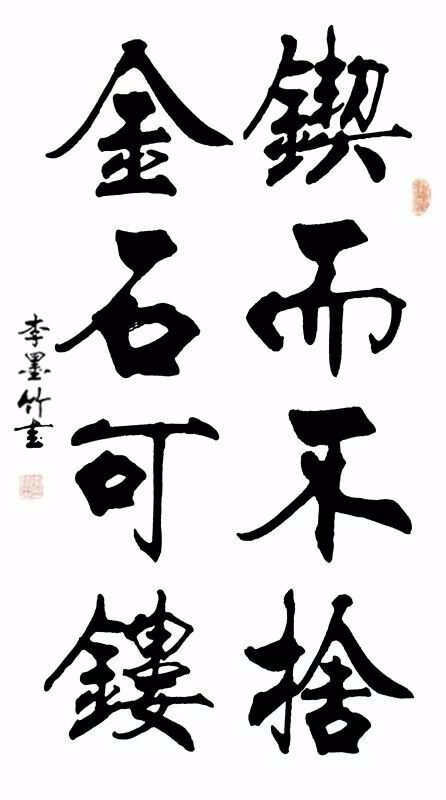 鍥而不捨
金石可鏤
李墨竹书